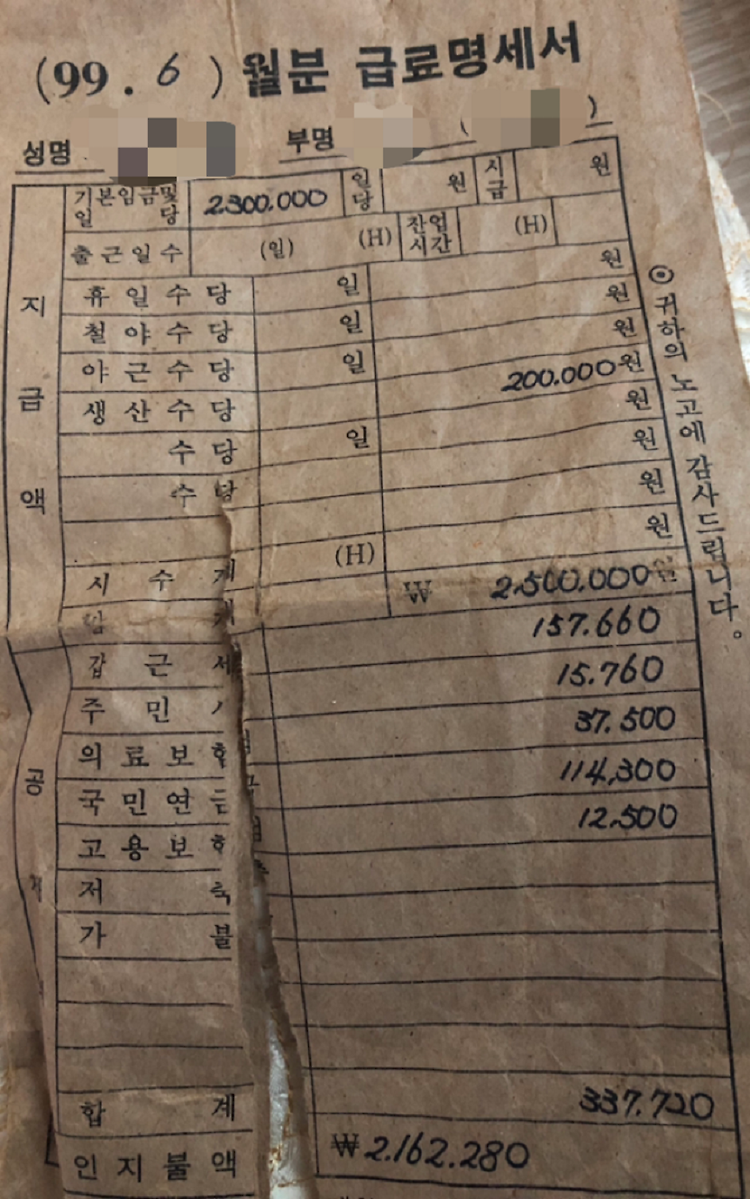 (99. 6 ) 월분 급료명세서
성명 부명 ( )
지급액
기본임금및 일당 2.300.000 일당 원 시급 원
출근일수 (일) (H) 잔업시간 (H)
휴일수당 일 원
철야수당 일 원
야근수당 일 원
생산수당 200.000원
수당 일 원
수당 원
원
시수계 (H) 원
₩ 2.500.000원
갑근세 157.660
주민 15.760
의료보험 37.500
국민연금 114,300
고용보험 12.500
저축
가불
공제
합계 337.720
인지불액 ₩2.162.280
◎ 귀하의 노고에 감사드립니다.